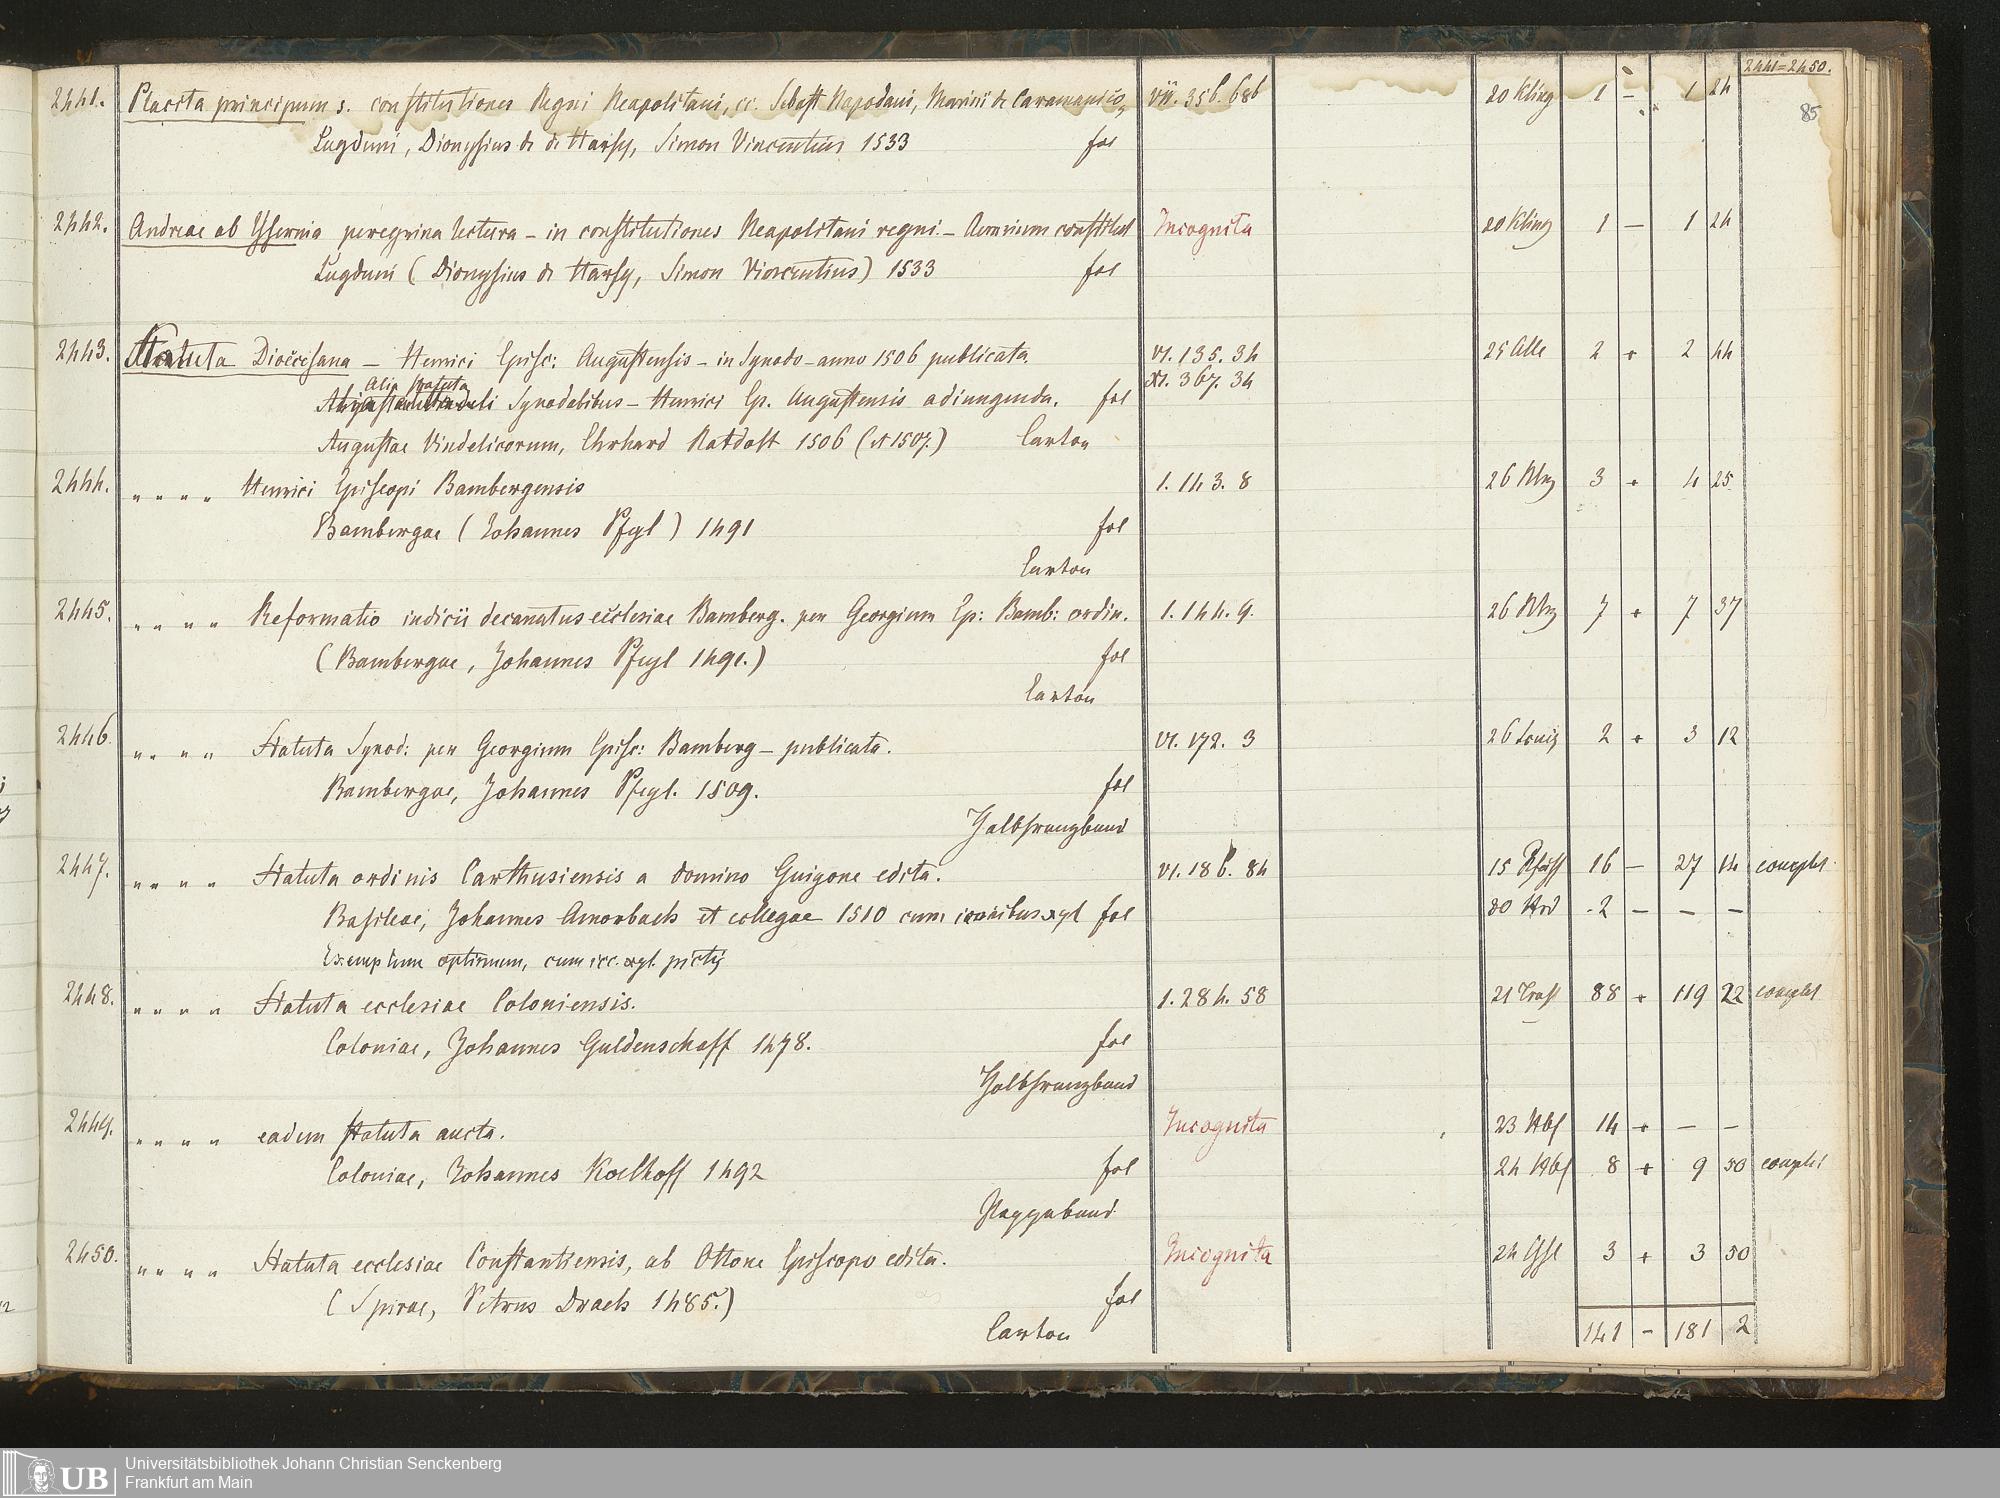 2441=2450.
85
2441. Placita principum s. constitutiones Regni Neapolitani, cc. Sebast Napodani, Marini de Caramanico, VII. 356. 686 20 Kling 1 - 1 24
Lugduni, Dionysius de Harsy, Simon Vincentius 1533 fol
2442. Andreae ab Ysernia peregrina lectura - in constitutiones Neapolitani regni. - 20 Kling 1 - 1 24
Incognita
Lugduni (Dionysius de Harsy, Simon Vincentius) 1533 fol
2443. Statuta Dioecesana - Henrici Episc: Augustensis - in Synodo - anno 1506 publicata. VI. 135. 34 25 2 + 2 44
Alia Statuta Synodalibus - Henrici Ep. Augustensis adiungenda. fol XI. 367. 34
Augustae Vindelicorum, Ehrhard Ratdolt 1506 (et 1507.) Carton
2444. " " " " Henrici Episcopi Bambergensis I. 143. 8 26 3 + 4 25
Bambergae (Johannes Pfeyl) 1491 fol
Carton
2445. " " " " Reformatio iudicii decanatus ecclesiae Bamberg. per Georgium Ep: Bamb: ordin. I. 144. 9. 26 7 + 7 37
(Bambergae, Johannes Pfeyl 1491.) fol
Carton
2446. " " " " Statuta Synod: per Georgium Episc: Bamberg - publicata. VI. 172. 3 26 2 + 3 12
Bambergae, Johannes Pfeyl. 1509. fol
Halbfranzband
2447. " " " " Statuta ordinis Carthusiensis a domino Guigone edita. VI. 186. 84 15 16 - 27 14 complet
Basileae, Johannes Amorbach et collegae 1510 cum iconibus xyl fol 2 - - -
Exemplum optimum, cum icc. xyl. pictis
2448. " " " " Statuta ecclesiae Coloniensis. I. 284. 58 21 88 + 119 22 complet
Coloniae, Johannes Guldenschaff 1478. fol
Halbfranzband
2449. " " " " eadem Statuta aucta. Incognita 23 14 + - -
Coloniae, Johannes Koelhoff 1492 fol 24 8 + 9 50 complet
Pappband
2450. " " " " Statuta ecclesiae Constantiensis, ab Ottone Episcopo edita. Incognita 24 3 + 3 50
(Spirae, Petrus Drach 1485.) fol
Carton 141 - 181 2
UB
Universitätsbibliothek Johann Christian Senckenberg
Frankfurt am Main